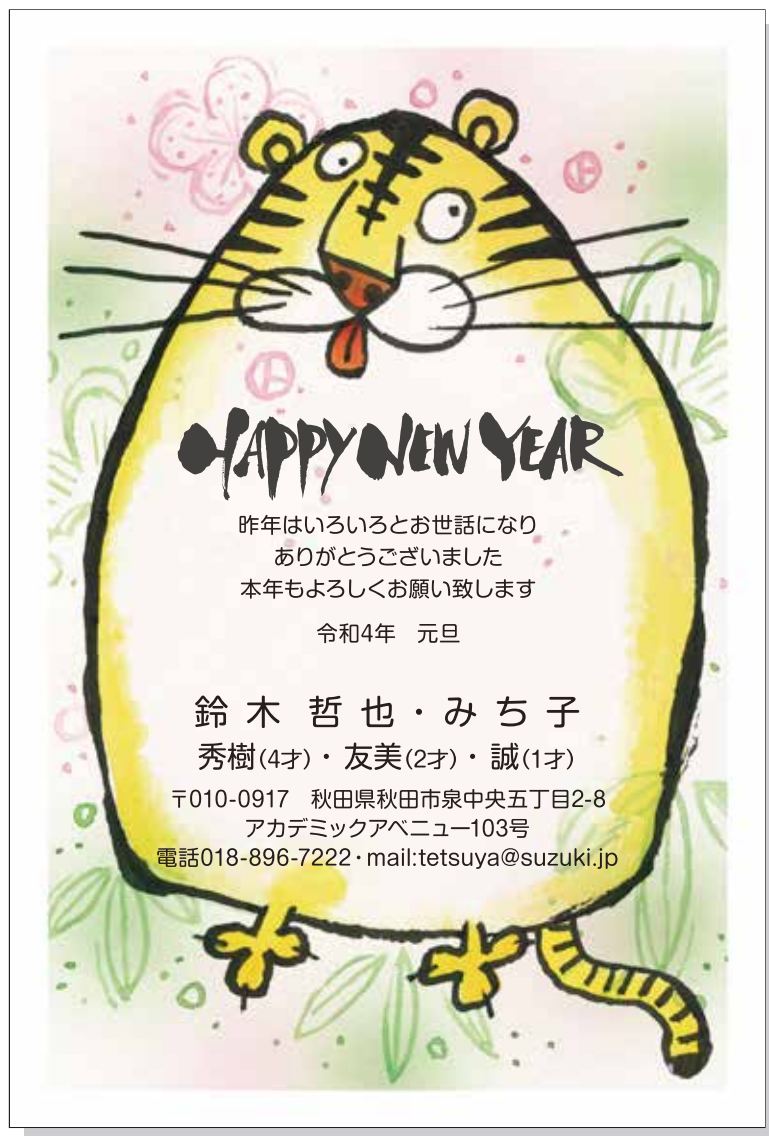 HAPPY NEW YEAR
昨年はいろいろとお世話になり
ありがとうございました
本年もよろしくお願い致します
令和4年　元旦
鈴木　哲也・みち子
秀樹(4才)・友美(2才)・誠(1才)
〒010-0917　秋田県秋田市泉中央五丁目2-8
アカデミックアベニュー103号
電話018-896-7222・mail:tetsuya@suzuki.jp